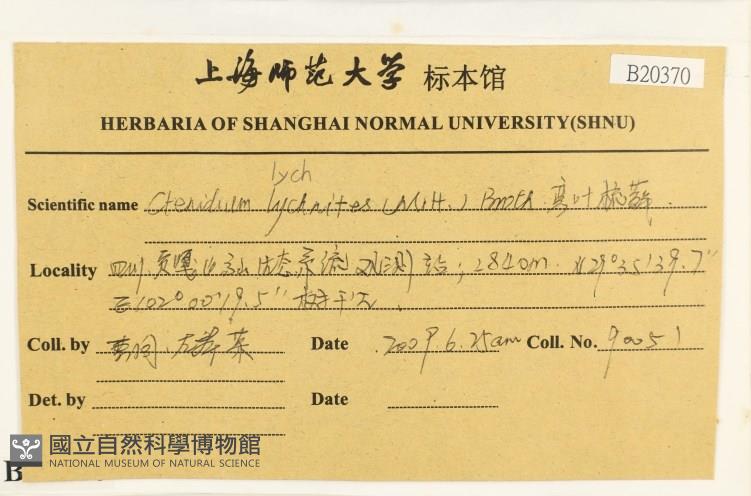 上海师范大学 标本馆
B20370
HERBARIA OF SHANGHAI NORMAL UNIVERSITY(SHNU)
lych
Scientific name Ctenidium lychnites (Mitt.) Broth. 弯叶梳藓
Locality 四川.贡嘎山高山生态系统观测站; 2840m. N29°35'39.7"
E102°00'19.5" 树干.
Coll. by Date 2009.6.25am Coll. No. 90051
Det. by Date
國立自然科學博物館
NATIONAL MUSEUM OF NATURAL SCIENCE
B